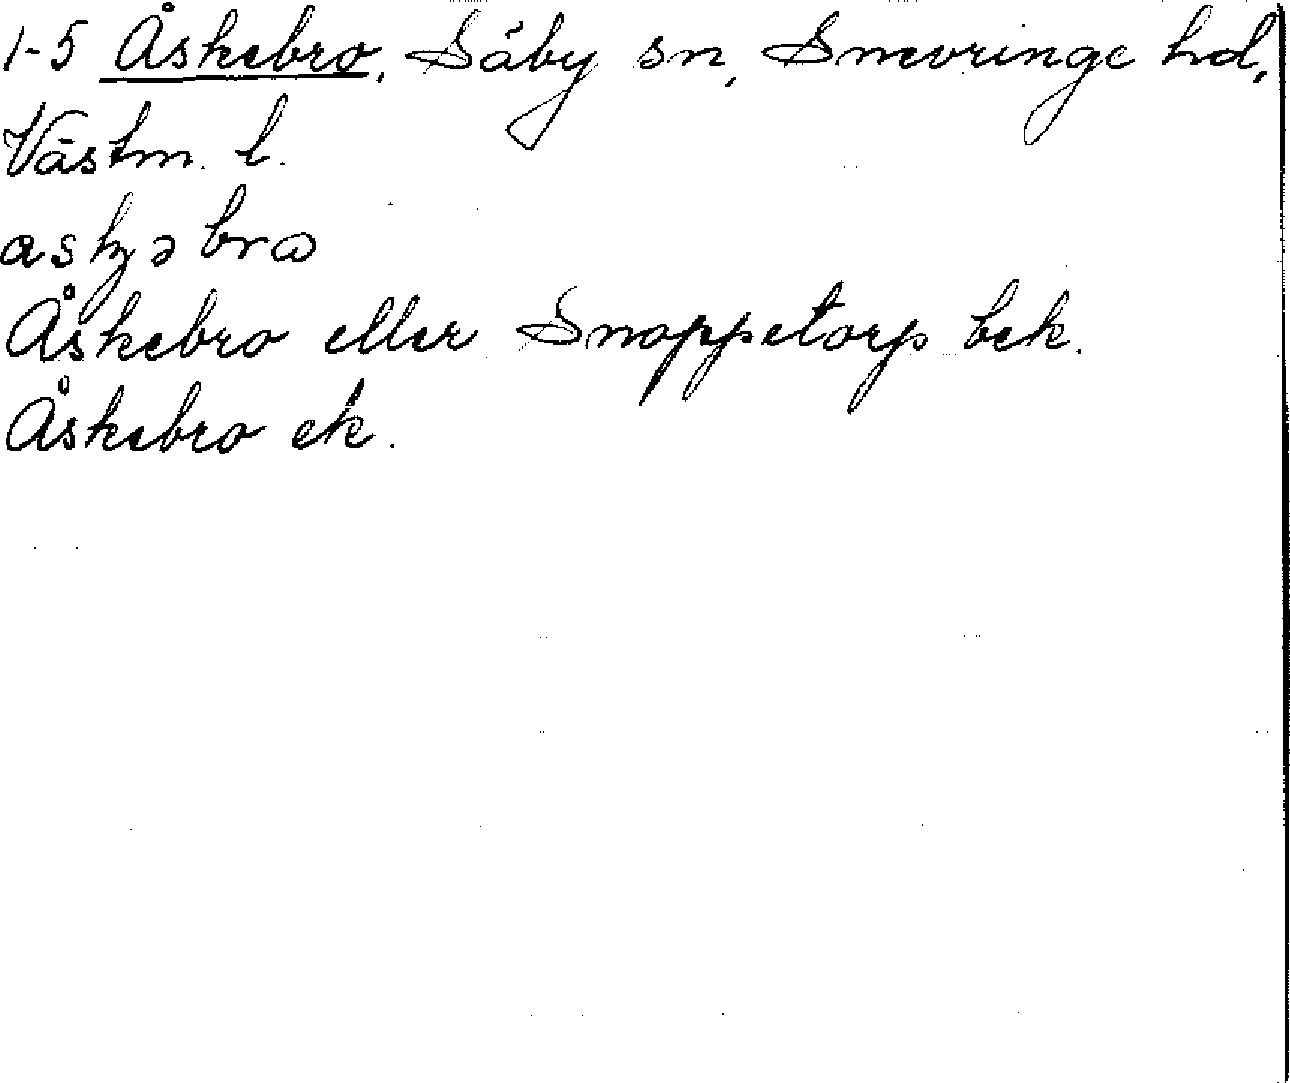 1-5 Åskebro, Säby sn, Snevringe hd,
Västm. l.
askəbrω
Åskebro eller Snoppetorps bek.
Åskebro ek.